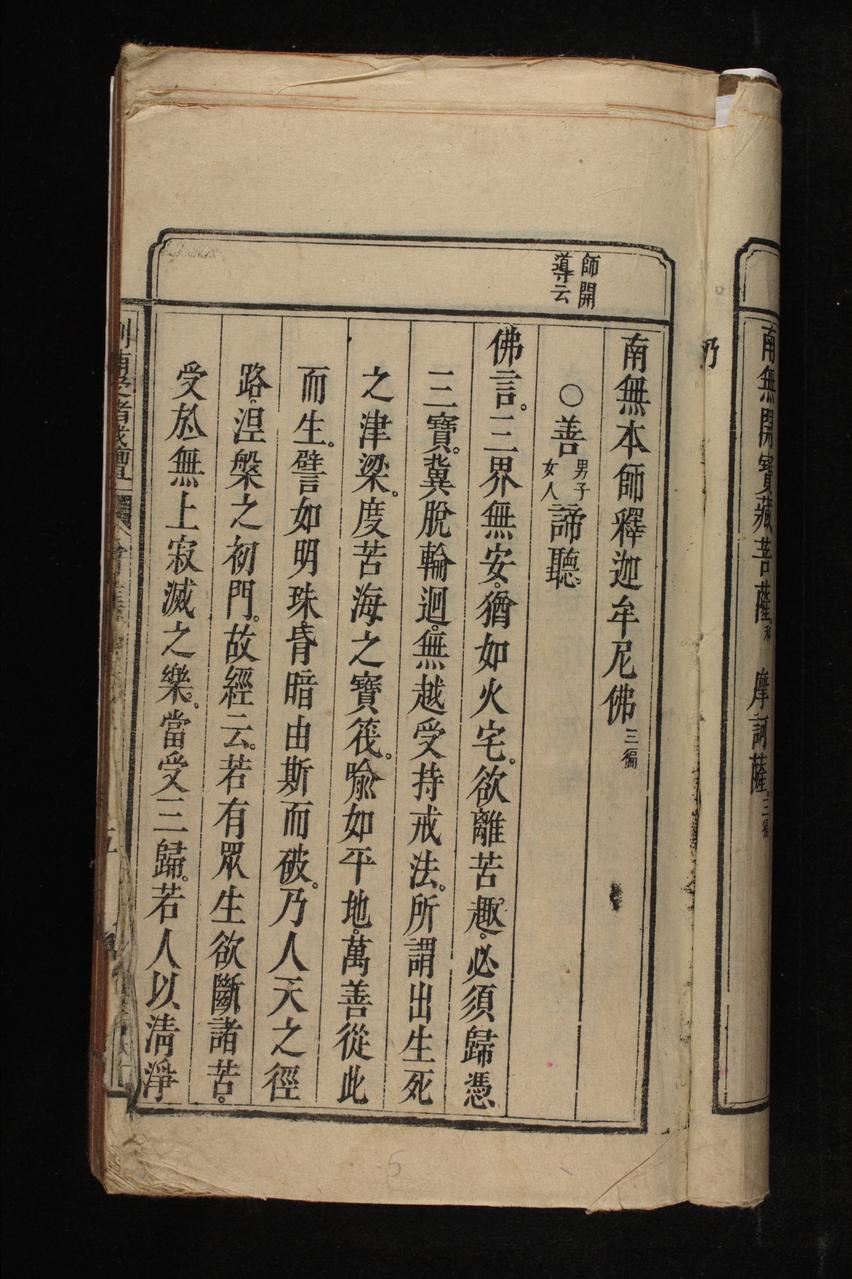 南無開寶藏菩薩 摩訶薩三徧
乃
師開
導云
南無本師釋迦牟尼佛三徧
○善男子女人諦聽。
佛言。三界無安。猶如火宅。欲離苦趣。必須歸憑
三寶。冀脫輪迴。無越受持戒法。所謂出生死
之津梁。度苦海之寶筏。喻如平地。萬善從此
而生。譬如明珠。昏暗由斯而破。乃人天之徑
路。涅槃之初門。故經云。若有眾生欲斷諸苦。
受於無上寂滅之樂。當受三歸。若人以清淨